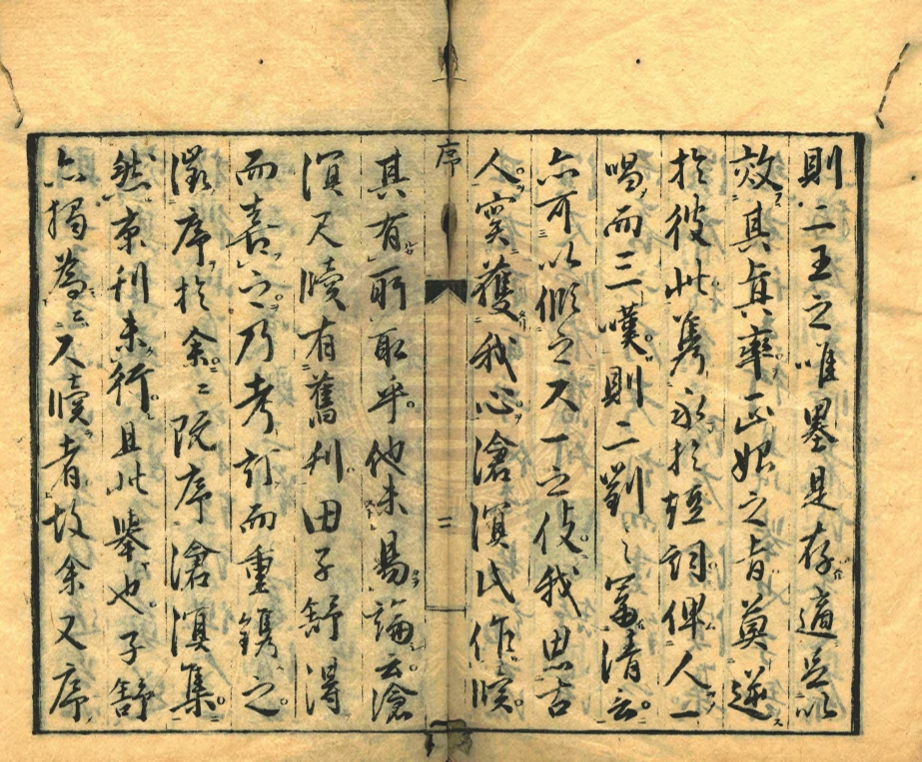 則二王之唯墨是存適足以
效其眞率正始之音莫逆
於彼此雋永於短詞俾人一
唱而三嘆則二劉之富清云
亦可以儗之尺一之伎我思古
人實獲我心滄溟氏作牘
序
二
其有所取乎他未易論云滄
溟尺牘有舊刊田子舒得
而喜之乃考訂而重鐫之
徵序於余〻既序滄溟集
然京刊未行且此舉也子舒
亦獨為尺牘者故余又序